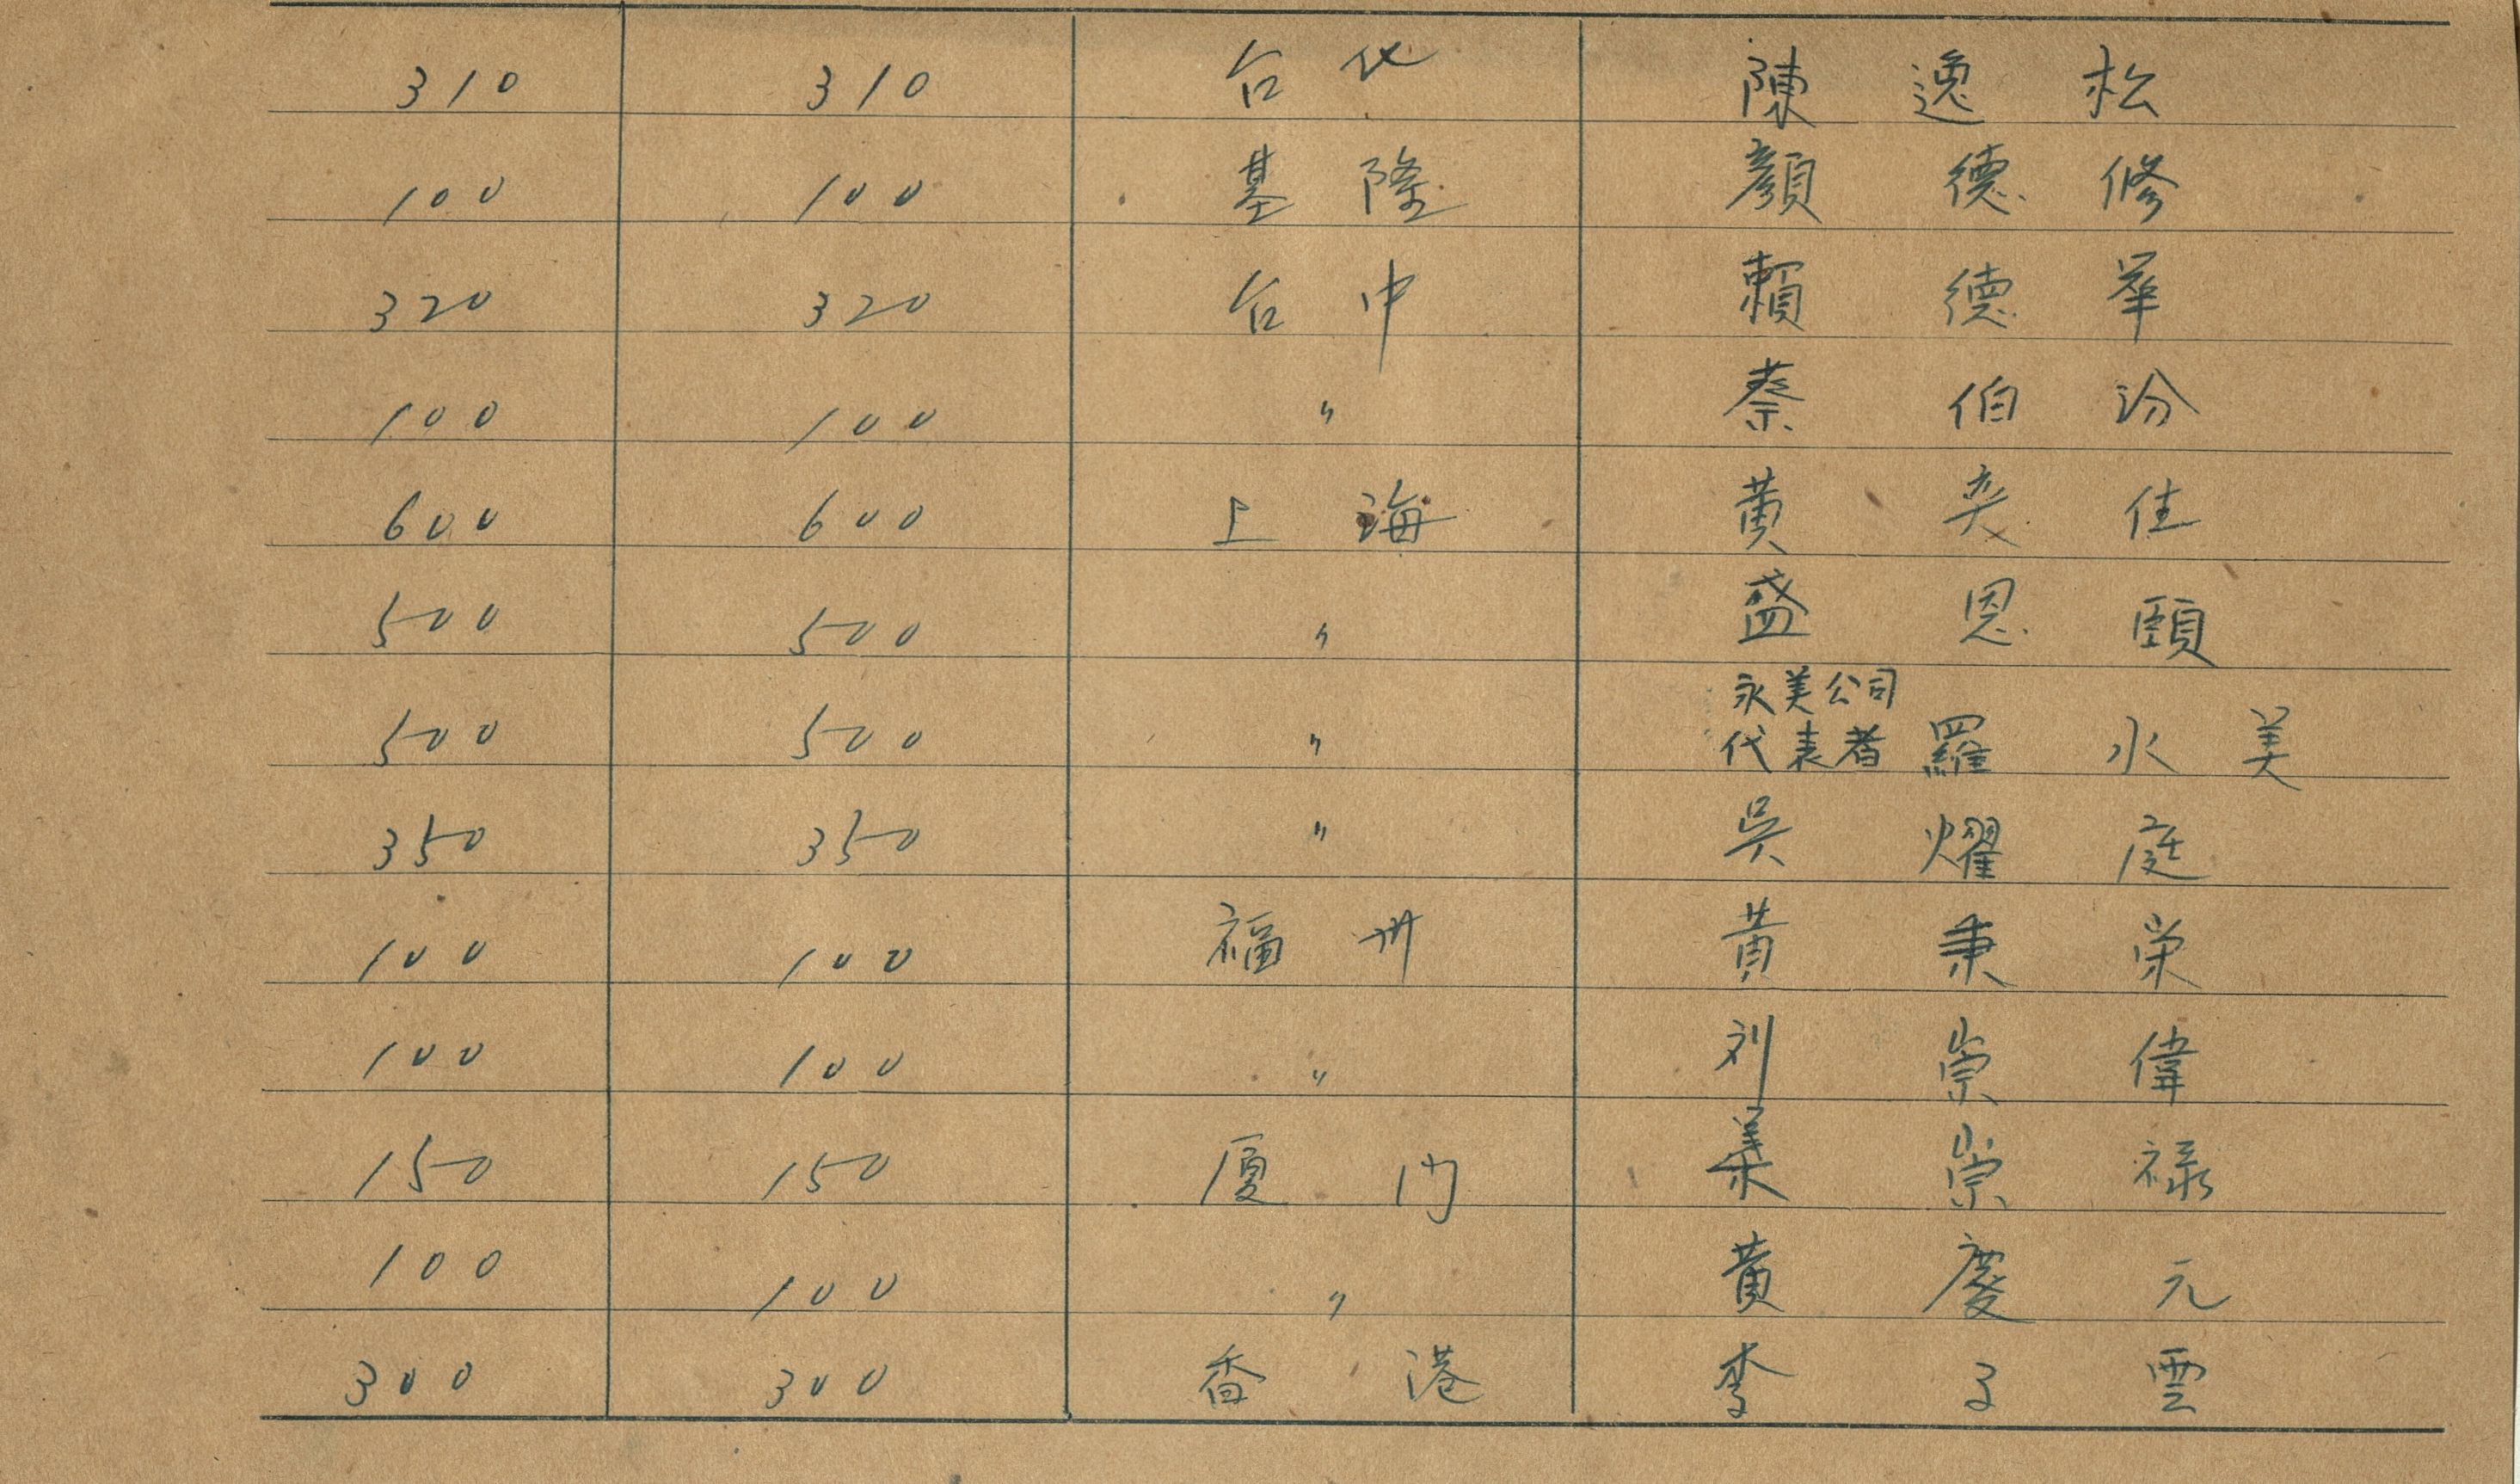 310 310 台北 陳逸松
100 100 基隆 顏德修
320 320 台中 賴德華
100 100 〃 蔡伯汾
600 600 上海 黃奕佳
500 500 〃 盛恩頤
永美公司
500 500 〃 代表者 羅永美
350 350 〃 吳燿庭
100 100 福州 黃秉榮
100 100 〃 刘崇偉
150 150 厦门 葉崇禄
100 100 〃 黃慶元
300 300 香港 李子雲